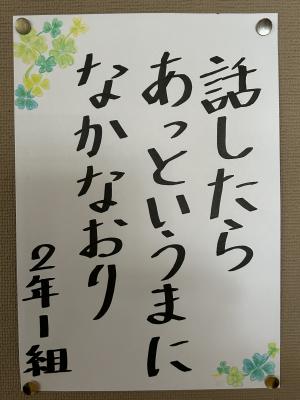 話したら
あっというまに
なかなおり
2年1組